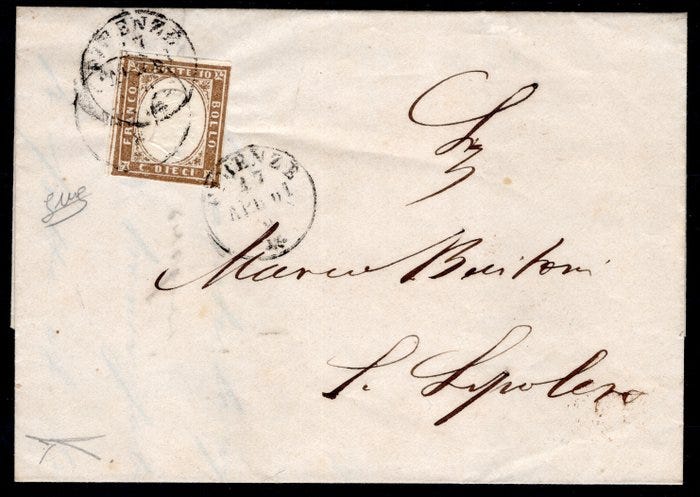 FIRENZE
17
FRANCO
C.STE 10
BOLLO
C. DIECI
FIRENZE
17
APR 61
Marco Buitoni
S. Sepolcro